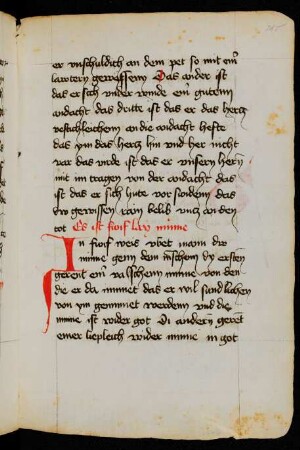 er vnschuldich an dem pet so mit einͤ
lawtern gewissenn Das ander ist
das er sich vnder winde einͤ gutenn
andacht das dritt ist das er das hertz
vestichleichenn an die andacht hefte
das ym das hertz hin vnd her nicht
var das vierde ist das er vnsern hern
mit im tragen von der andacht das
ist das er sich hute vor sunden das
dy gewissen rain belib vntz an den
tot Es ist funf lay minne
In funf weis vbet mann dw
minne genn dem menschenn dy ersten
geret einͤ valschenn minne von den
die er da minnet das er wil
von ym geminnet werdenn vnd die
minne ist wider got Di andern geret
einer liepleich wider minne in got